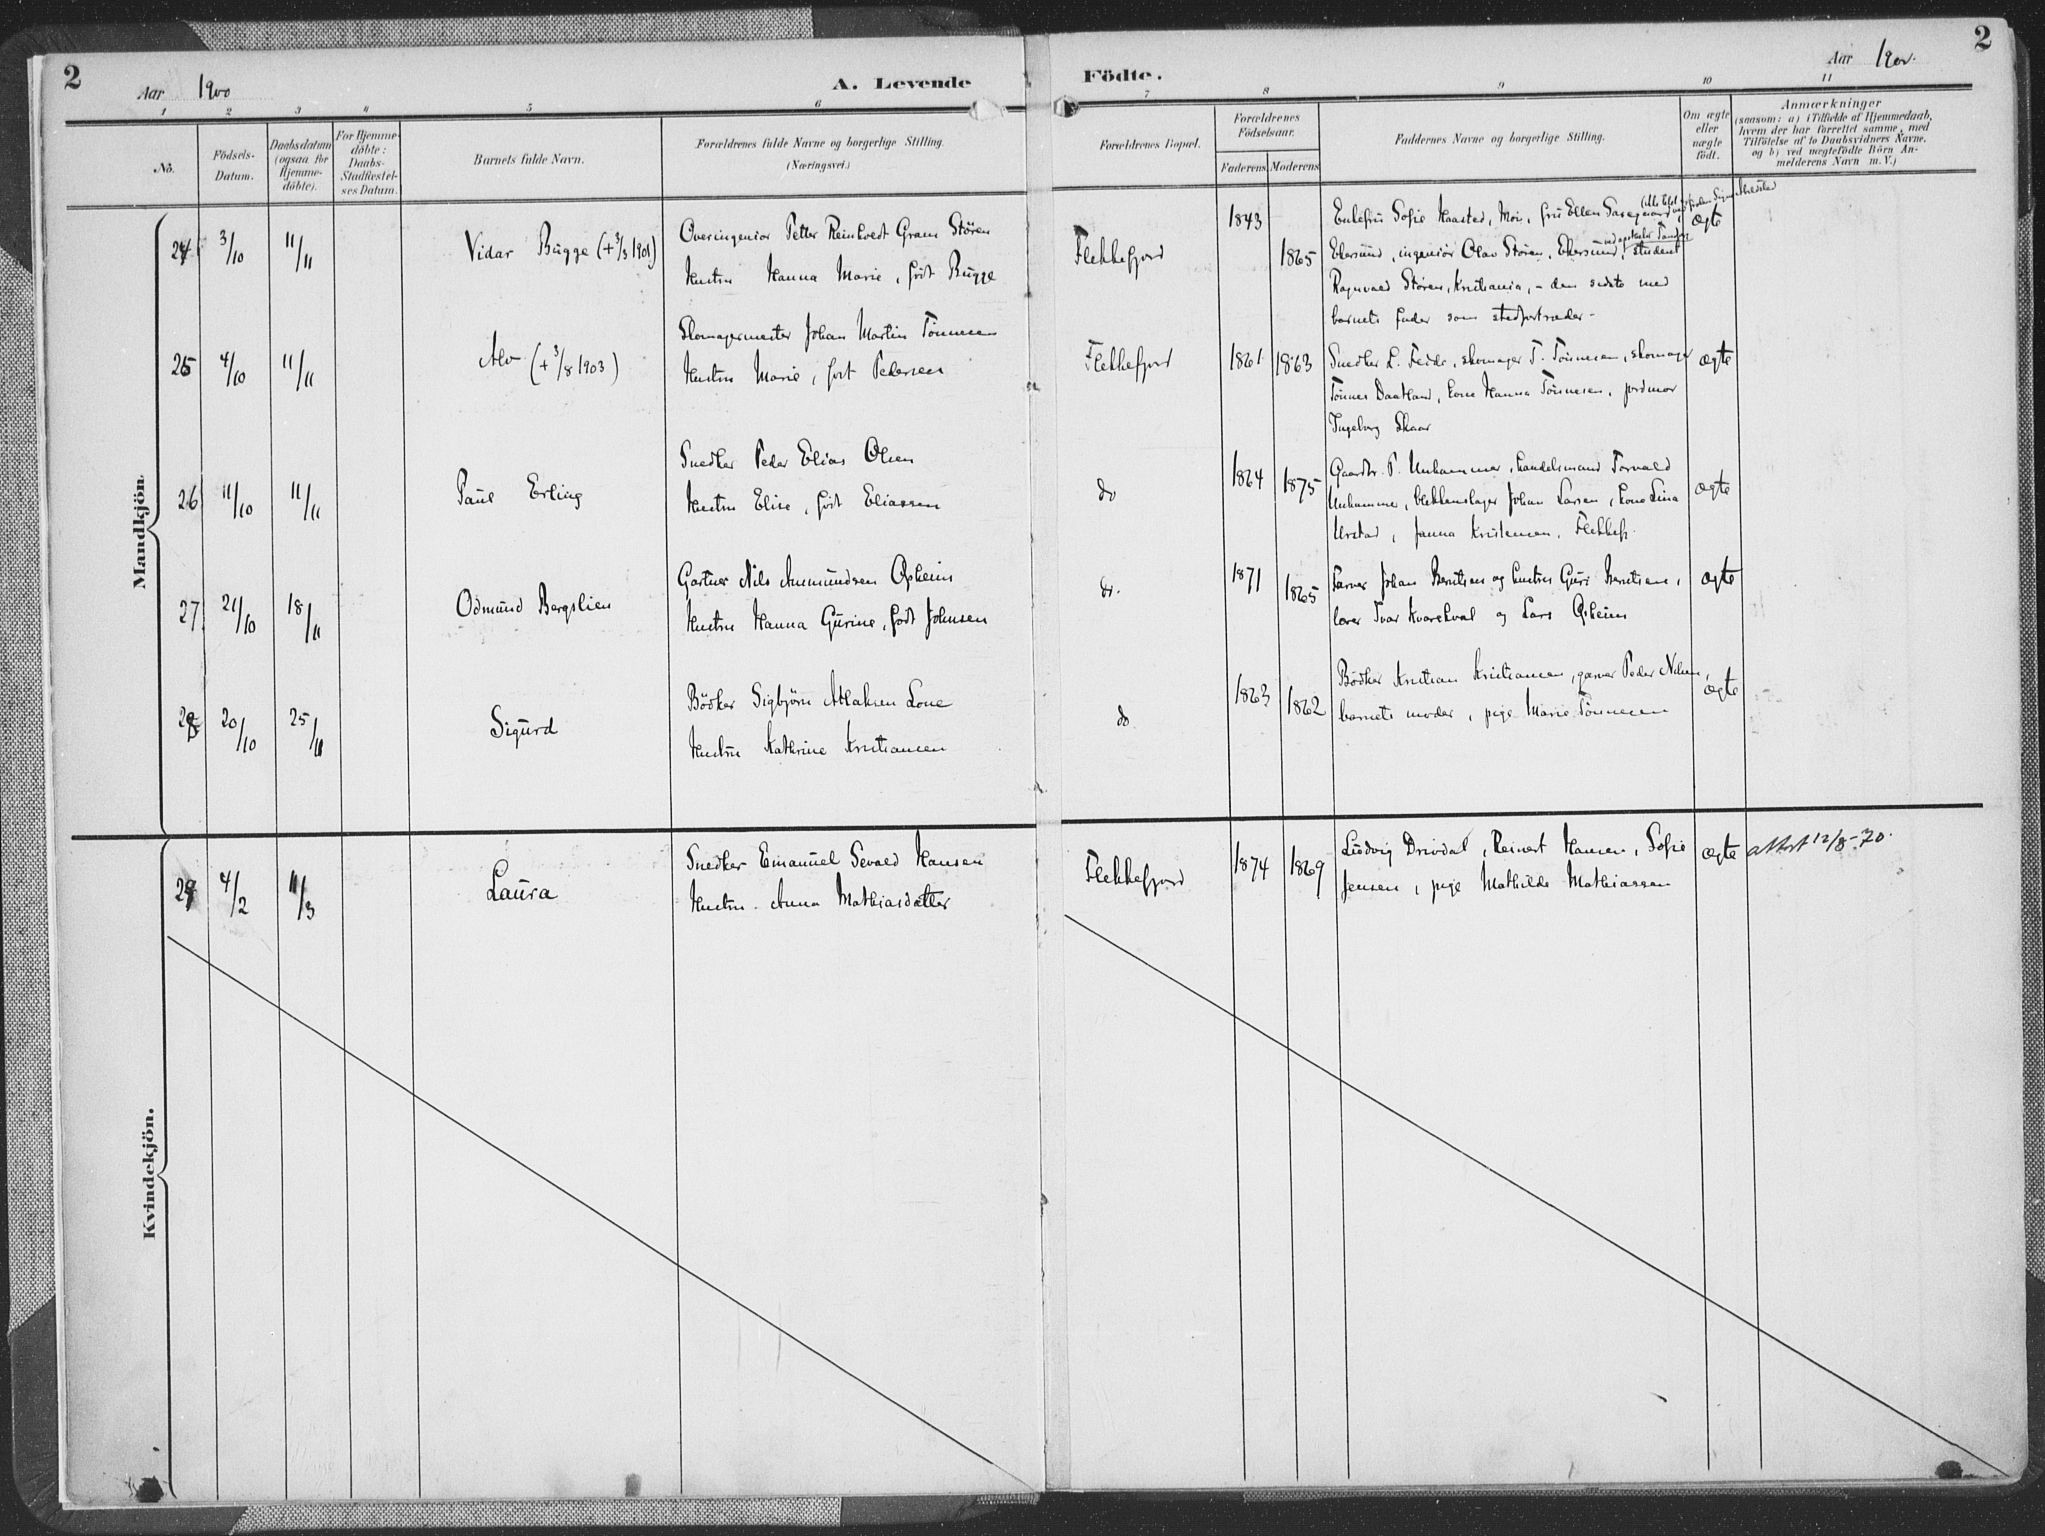 2
Aar 1900
A. Levende
Födte.
Aar 1900.
2
1 2 3 4 5 6 7 8 9 10 11
No.
Födsels-
Datum.
Daabsdatum
(ogsaa for
Hjemme-
döbte).
For Hjemme-
döbte:
Daabs-
Stadfæstel-
ses Datum.
Barnets fulde Navn.
Forældrenes fulde Navne og borgerlige Stilling.
(Næringsvei.)
Forældrenes Bopæl.
Forældrenes
Födselsaar.
Faderens
Moderens
Faddernes Navne og borgerlige Stilling.
Om ægte
eller
uægte
födt.
Anmærkninger
(saasom: a) i Tilfælde af Hjemmedaab,
hvem der har forrettet samme, med
Tilföielse af to Daabsvidners Navne,
og b) ved uægtefödte Börn An-
melderens Navn m. V.)
Mandkjön.
24 3/10 11/11 Vidar Bugge (+ 3/3 1901)
Overingeniør Petter Reinholdt Gram Stören
Hustru Hanna Marie, født Bugge
Flekkefjord 1843 1865
Enkefru Sofie Haasted, Moi, fru Ellen
Ekersund, ingeniör Olav Stören, Ekersund, student
Ragnvald Stören, Kristiania, - den sidste med
barnets fader som stedfortræder -
ægte
25 4/10 11/11 Alv (+ 3/8 1903)
Skomagermester Johan Martin Tönnesen
Hustru Marie, født Pedersen
Flekkefjord 1861 1863
Snedker L. Fedde, skomager T. Tönnesen, skomager
Tönnes Daatland, kone Hanna Tönnesen, jordmor
Ingeborg Skaar
ægte
26 11/10 11/11 Paul Erling
Snedker Peder Elias Olsen
Hustru Elise, född Eliassen
do 1864 1875
Gaardbr. P. Unhammer, handelsmand Torvald
Unhammer, blikkenslager Johan Larsen, kone Lina
Urstad, Janna Kristensen, Flekkefj.
ægte
27 21/10 18/11 Odmund Bergslien
Gartner Nils Ammundsen Opheim
Hustru Hanna Gurine, född Johnsen
do. 1871 1865
Farver Johan Berntsen og hustru Guri Berntsen,
lærer Ivar Kvarekval og Lars Opheim
ægte
28 20/10 25/11 Sigurd
Bödker Sigbjörn Atlaksen Lone
Hustru Kathrine Kristiansen
do 1863 1862
Bödker Kristian Kristiansen, garver Peder Nilsen,
barnets moder, pige Marie Tönnesen
ægte
Kvindekjön.
29 4/2 11/3 Laura
Snedker Emanuel Sevald Hansen
Hustru Anna Mathiasdatter
Flekkefjord 1874 1869
Ludvig Drivdal, Reinert Hansen, Sofie
Jensen, pige Mathilde Mathiassen
ægte
attest 12/8-70.